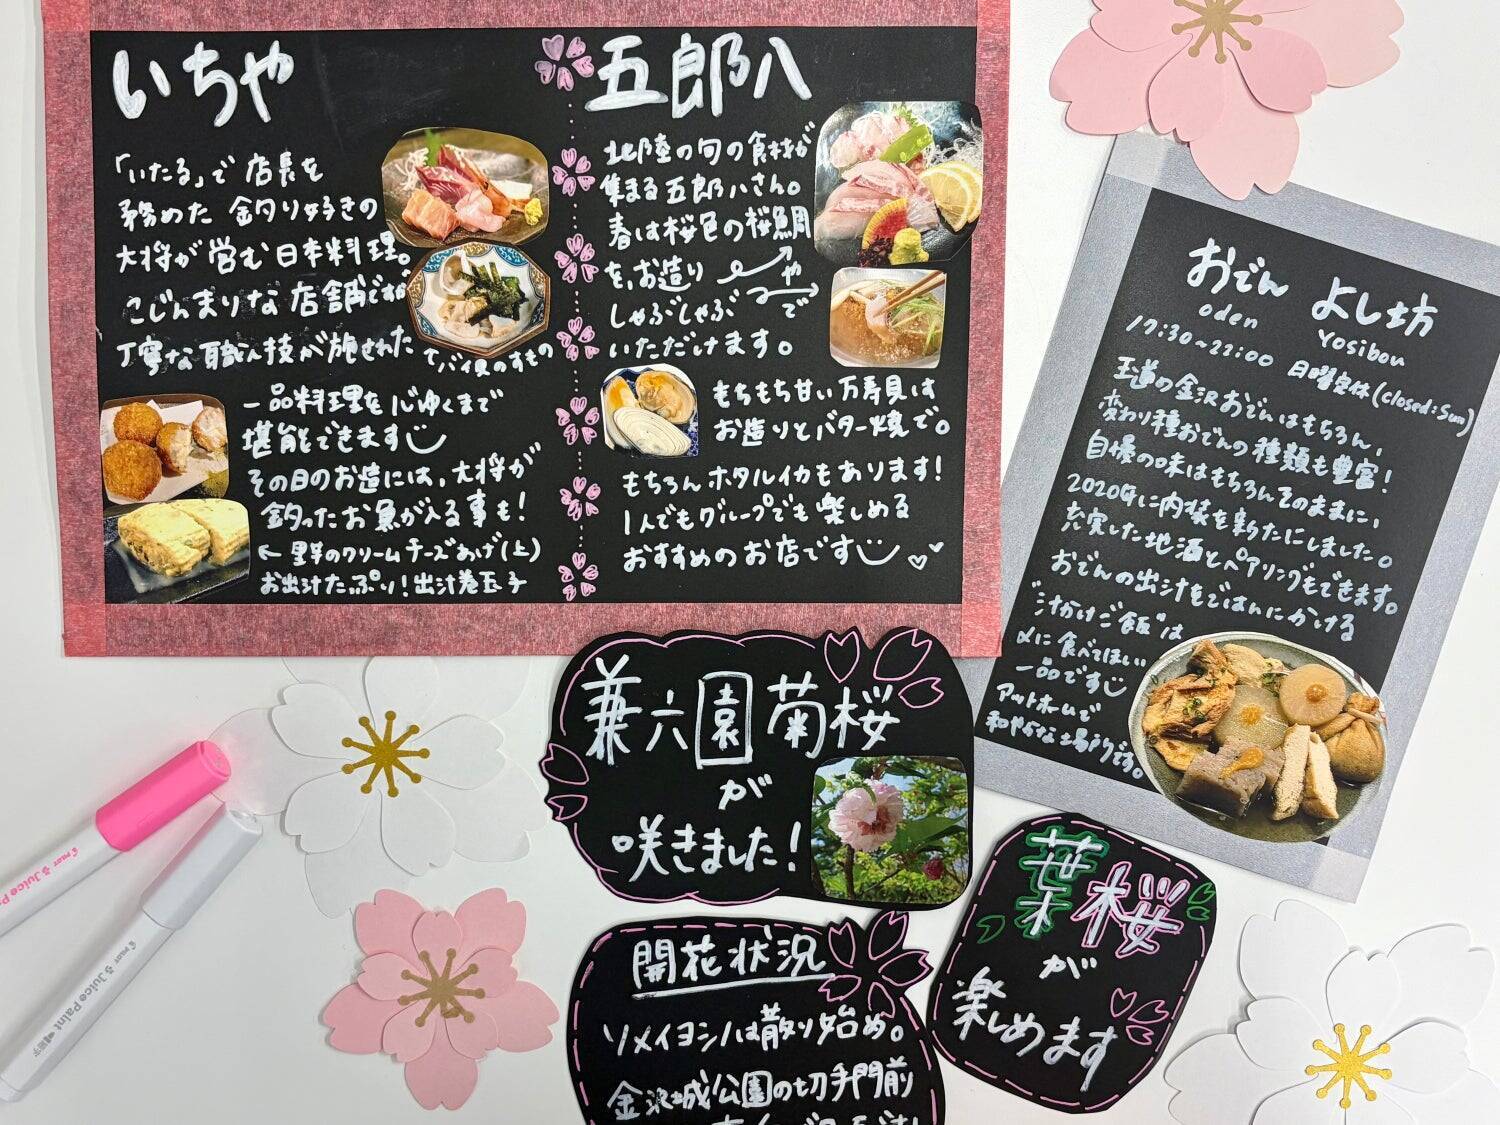 いちや
「いたる」で店長を
務めた 釣り好きの
大将が営む日本料理。
こじんまりな店舗ですが
丁寧な職人技が施された
てバイ貝のすもの
一品料理を心ゆくまで
堪能できます
その日のお造には、大将が
釣ったお魚が入る事も!
← 里芋のクリームチーズあげ(上)
お出汁たっぷり!出汁巻玉子
五郎八
北陸の旬の食材が
集まる五郎八さん。
春は桜色の桜鯛
を、お造り
や
しゃぶしゃぶ で
いただけます。
もちもち甘い万寿貝は
お造りとバター焼で。
もちろんホタルイカもあります!
1人でもグループでも楽しめる
おすすめのお店です
おでん よし坊
oden Yosibou
17:30~22:00 日曜定休(closed:Sun)
王道の金沢おでんはもちろん、
変わり種おでんの種類も豊富!
自慢の味はもちろんそのままに、
2020年に内装を新たにしました。
充実した地酒とペアリングもできます。
おでんの出汁をごはんにかける
"汁かけご飯"は
〆に食べてほしい
一品です
アットホームで
和やかな場所です。
兼六園菊桜
が
咲きました!
葉桜
が
楽しめます
開花状況
ソメイヨシノは散り始め。
金沢城公園の切手門前
mar Juice Paint
mar Juice Pa